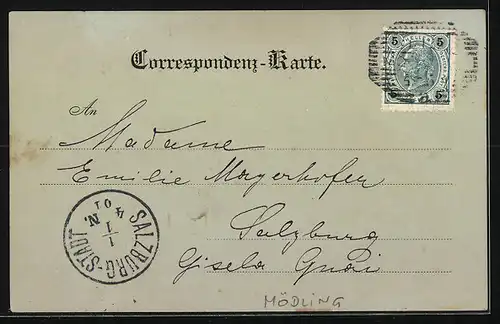 5 5
5 5
Correspondenz-Karte.
An
Madame
Emilie Mayerhofer
Salzburg
Gisela Quai
SALZBURG-STADT
1
1
4 01 N.
MÖDLING